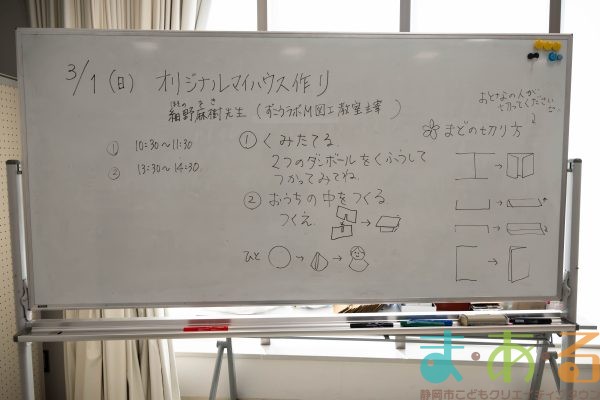 3/1(日) オリジナルマイハウス作り
細野麻樹先生(ずこうラボM図工教室主宰)
① 10:30～11:30
② 13:30～14:30
① くみたてる。
2つのダンボールをくふうして
つかってみてね。
② おうちの中をつくる
つくえ
ひと
おとなの人が
切ってくださいね
まどの切り方
ま・あ・る
静岡市こどもクリエイティブタウン